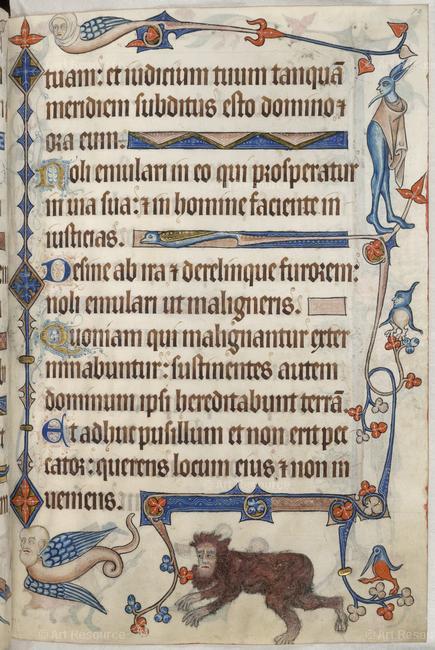 tuam: et iudicium tuum tanquā
meridiem subditus esto domino ⁊
ora eum.
Noli emulari in eo qui prosperatur
in uia sua: ⁊ in homine faciente in
iusticias.
Desine ab ira ⁊ derelinque furorem:
noli emulari ut maligneris.
Quoniam qui malignantur exter
minabuntur: sustinentes autem
dominum ipsi hereditabunt terrā.
Et adhuc pusillum et non erit pec
cator: queres locum eius ⁊ non in
uenies.
© Art Resource
© Art Resource